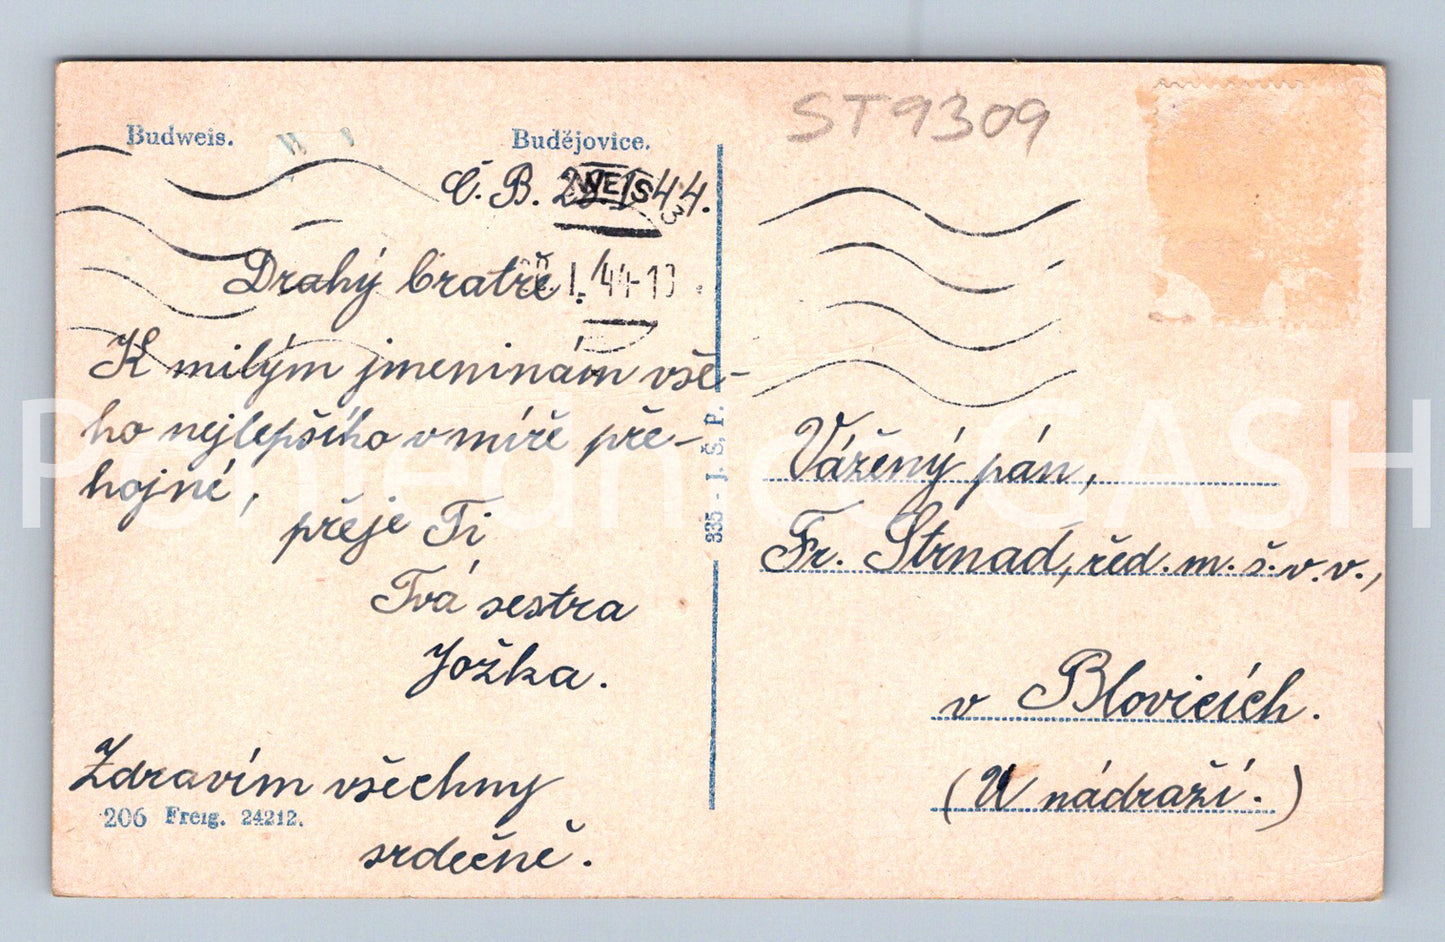 ST9309
Budweis. Budějovice.
Č. B. 28.1.44.
WEIS
3
I. 44-10
Drahý bratře.
K milým jmeninám vše-
ho nejlepšího v míře pře-
hojné,
přeje Ti
Tvá sestra
Jožka.
Zdravím všechny
206 Freig. 24212.
srdečně.
335 - J. Š. P.
Vážený pán,
Fr. Strnad, řed. m. š. v. v.,
v Blovicích.
(U nádraží.)
Pohlednice GASH